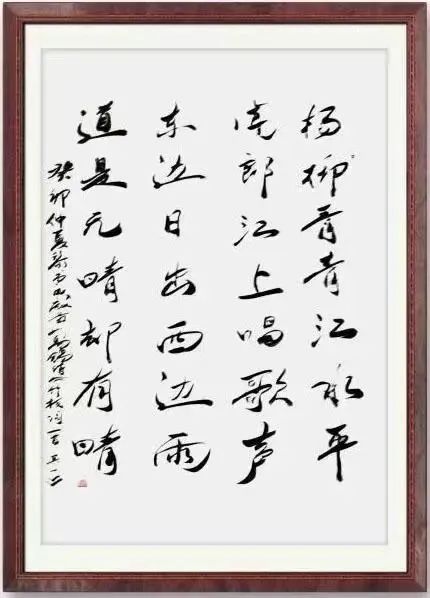 杨柳青青江水平
闻郎江上唱歌声
东边日出西边雨
道是无晴却有晴
癸卯仲夏 禹锡 竹枝词一首